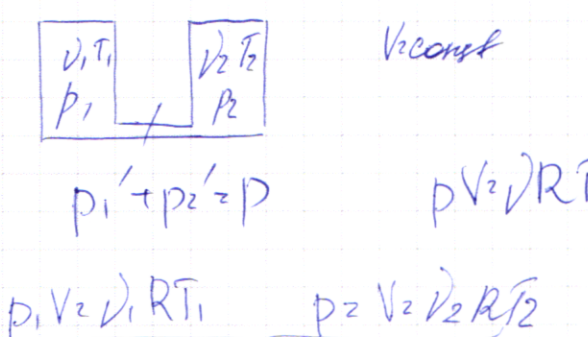 ν₁T₁ ν₂T₂ V=const
p₁ p₂
p₁′+p₂′=p pV=νRT
p₁V=ν₁RT₁ p₂V=ν₂RT₂